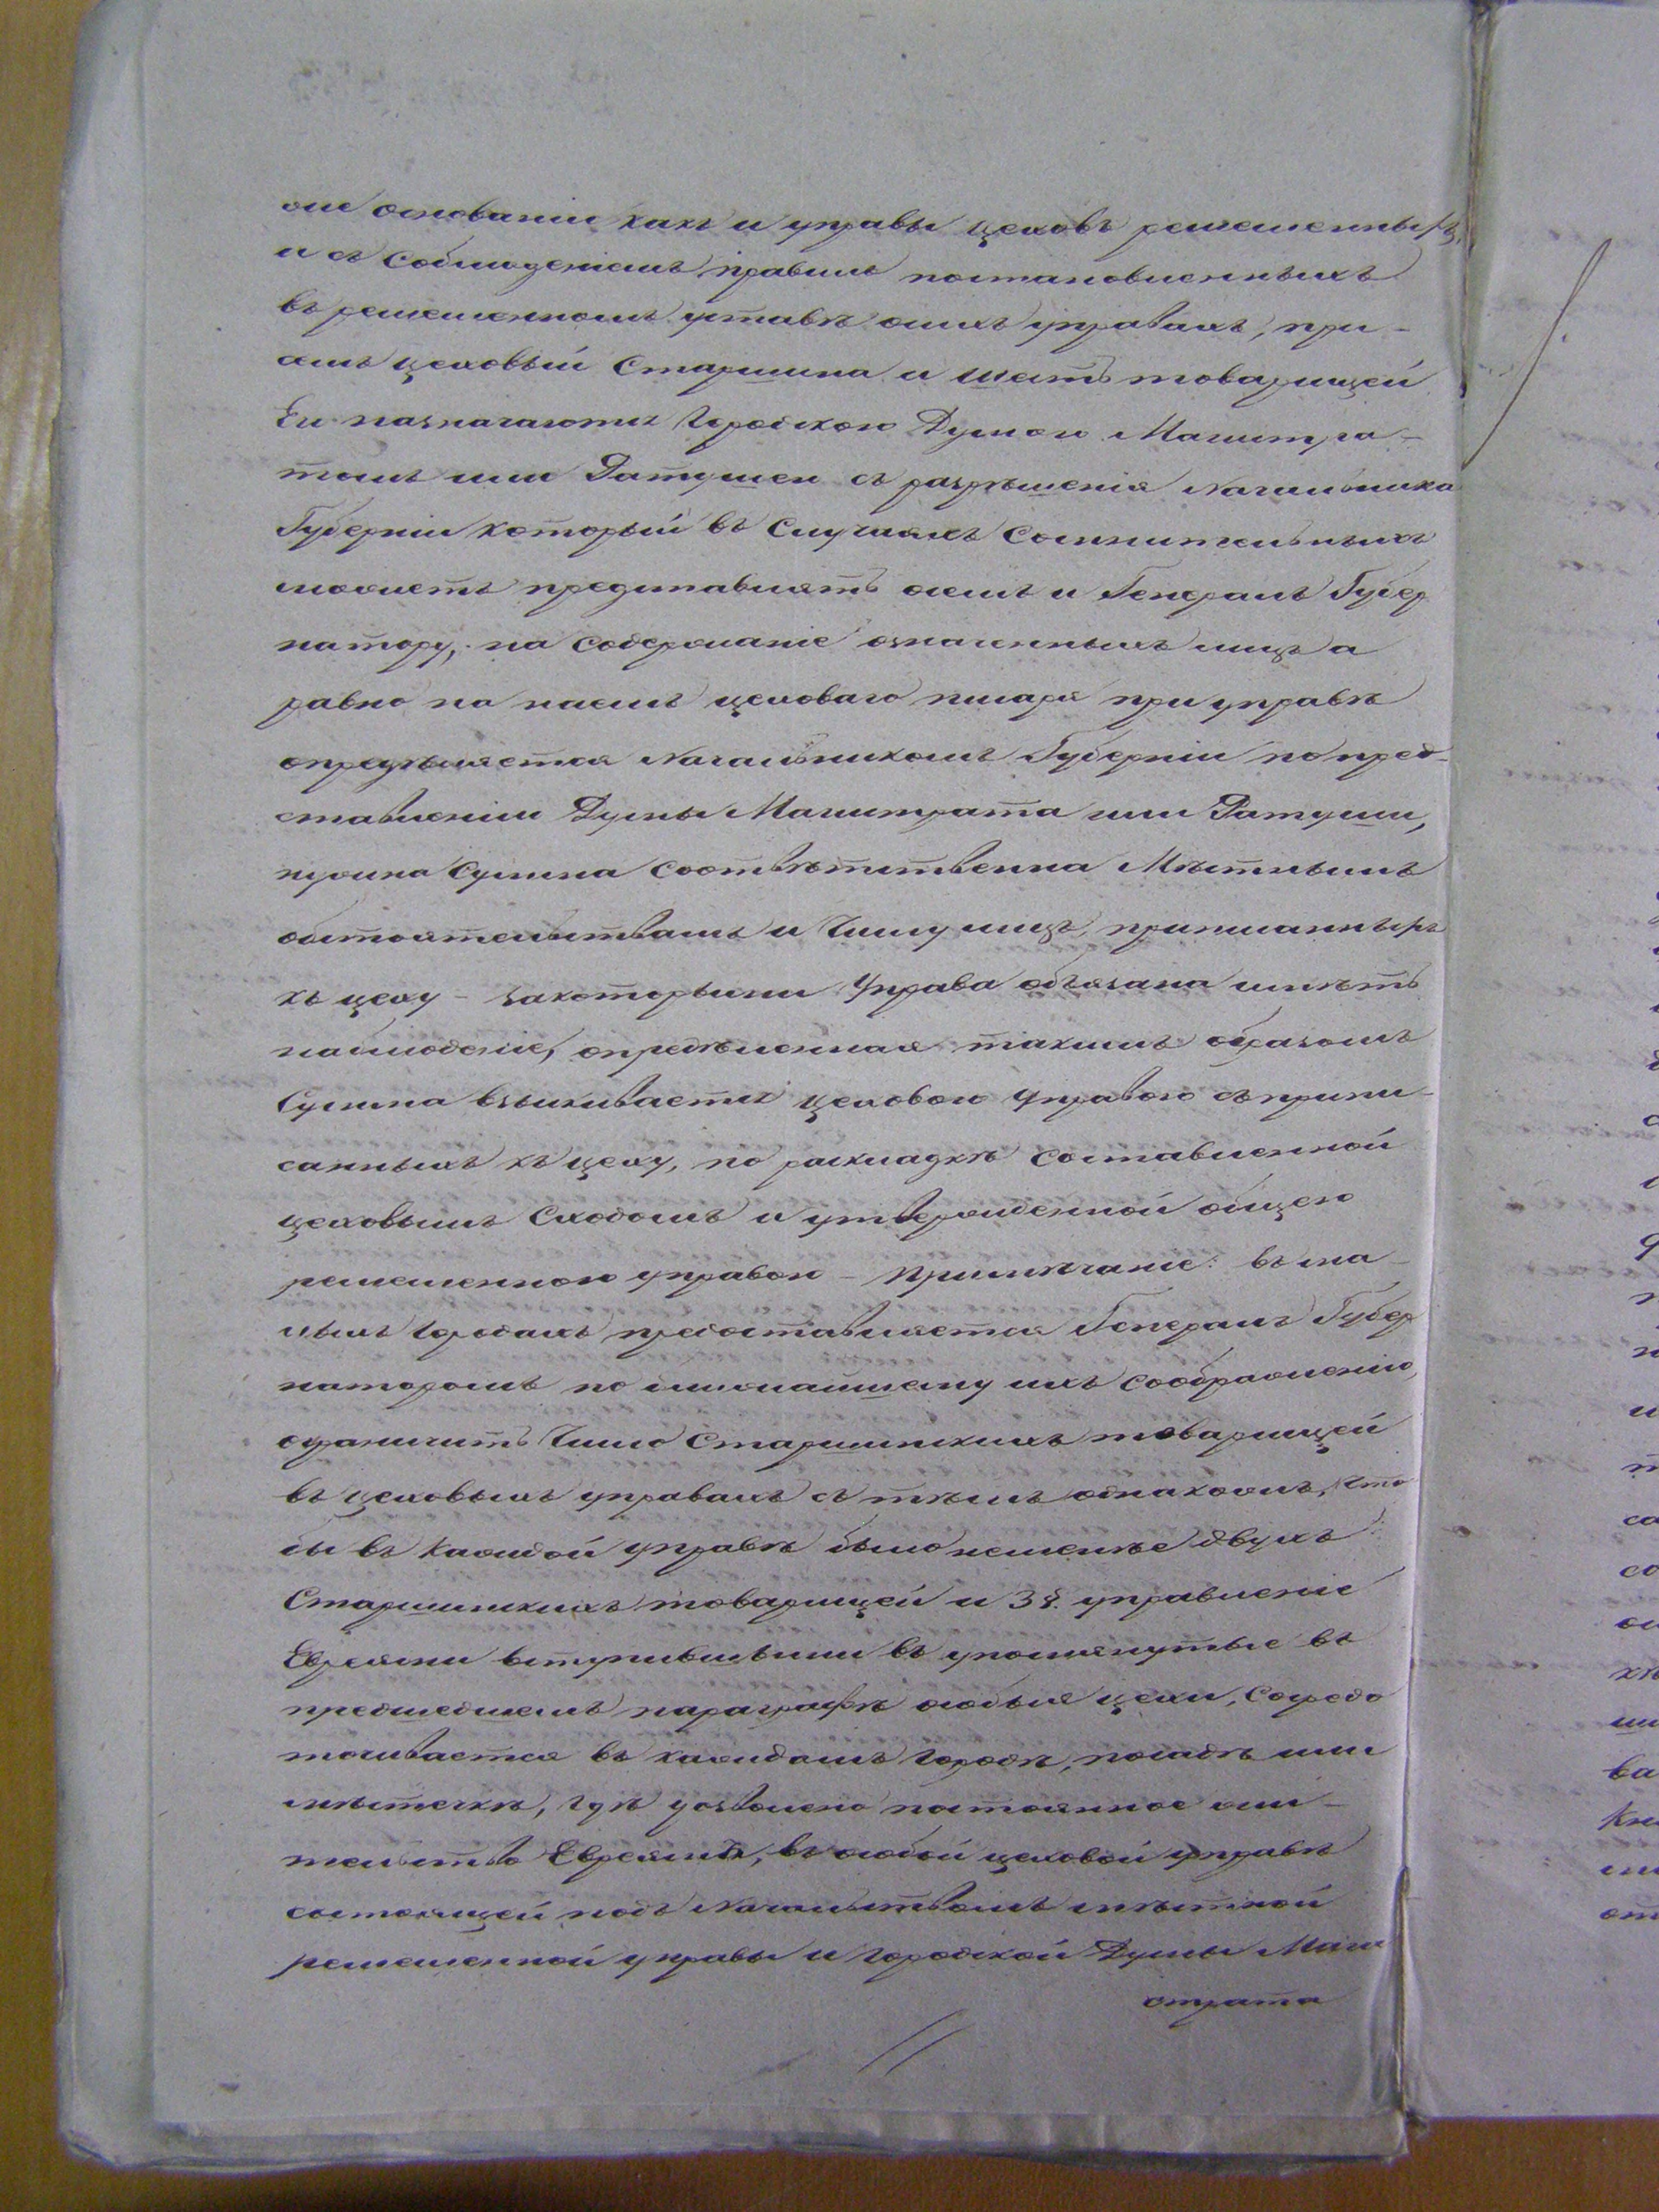 же основаніи какъ и управы цеховъ ремесленныхъ,
и съ соблюденіемъ правилъ постановленныхъ
въ ремесленномъ уставѣ онихъ управахъ, при-
чемъ цеховый Старшина и шесть товарищей
Ея назначаются Городскою Думою Магистра-
томъ или Ратушею съ разрѣшенія Начальника
Губерніи который въ Случаяхъ Сомнительныхъ
можетъ представлять о семъ и Генералъ Губер
натору, на содержаніе означенныхъ лицъ а
равно на наемъ цеховаго писаря при управѣ
опредѣляется Начальникомъ Губерніи по пред-
ставленіи Думы Магистрата или Ратуши,
нужная Сумма Соотвѣтственна Мѣстнымъ
обстоятельствамъ и Числу лицъ, приписанныхъ
къ цеху - закоторыми Управа обязана имѣть
наблюденіе, опредѣленная такимъ образомъ
Сумма взыскивается цеховою Управою съ припи-
санныхъ къ цеху, по раскладкѣ составленной
цеховымъ Сходомъ и утвержденной общею
ремесленною управою - Примѣчаніе: въ ма-
лыхъ Городахъ предоставляется Генералъ Губер
наторомъ по ближайшему ихъ соображенію,
ограничить Число Старшинскихъ товарищей
въ цеховыхъ управахъ съ тѣмъ однакожъ, что
бы въ Каждой управѣ было неменѣе двухъ
Старшинскихъ товарищей и 38. управленіе
Евреями вступившыми въ упомянутые въ
предшедшемъ параграфѣ особыя цехи, сосредо
точивается въ каждомъ Городѣ, посадѣ или
мѣстечкѣ, гдѣ дозволено постоянное жи-
тельство Евреямъ, въ особой цеховой управѣ
состоящей подъ Начальствомъ мѣстной
ремесленной управы и городской Думы Маги
страта